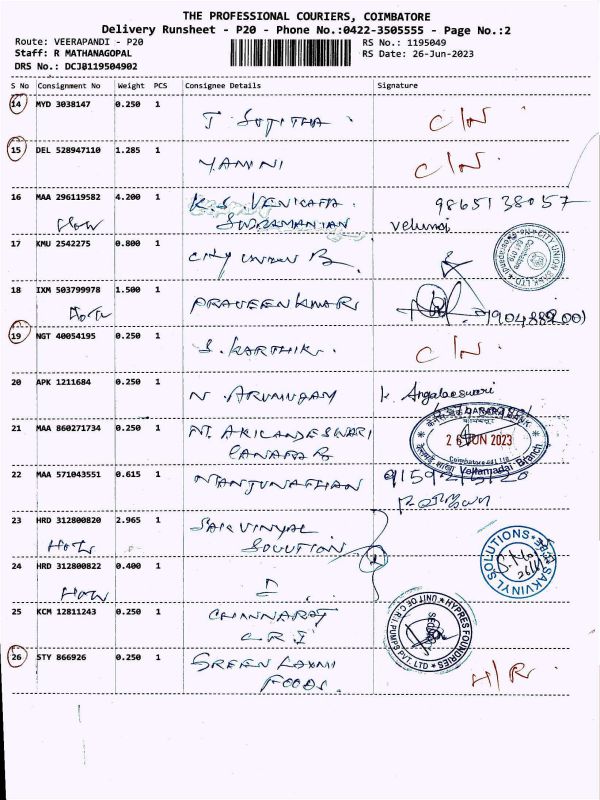 THE PROFESSIONAL COURIERS, COIMBATORE
Delivery Runsheet - P20 - Phone No.:0422-3505555 - Page No.:2
Route: VEERAPANDI - P20
Staff: R MATHANAGOPAL
DRS No.: DCJB119504902
RS No.: 1195049
RS Date: 26-Jun-2023
S No Consignment No Weight PCS Consignee Details Signature
14 MYD 3038147 0.250 1 T. SUJITHA C/N
15 DEL 528947110 1.285 1 YAMINI C/N
16 MAA 296119582 4.200 1 K.S. VENKATA 9865138057
SUBRAMANIAN velumoi
17 KMU 2542275 0.800 1 CITY UNION B
CITY UNION BANK LTD
18 IXM 503799978 1.500 1 PRAVEEN KUMAR
19 NGT 40054195 0.250 1 S. KARTHIK C/N
20 APK 1211684 0.250 1 N. ARUMUGAM K. Angalaeswari
21 MAA 860271734 0.250 1 NT. AKILANDESWARI
CANARA B
CANARA BANK
26 JUN 2023
Coimbatore 641 110
Vellamadai Branch
22 MAA 571043551 0.615 1 NANJUNATHAN
23 HRD 312800820 2.965 1 SAKVINYAL
SOLUTION
SAKVINYL SOLUTIONS
24 HRD 312800822 0.400 1
25 KCM 12811243 0.250 1 CHINNARAJ
C R I
HYPRES FOUNDRIES
UNIT OF C.R.I. PUMPS PVT. LTD
26 STY 866926 0.250 1 SREEN LAXMI H/R
FOODS.